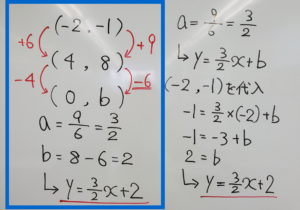 (-2, -1)
+6 +9
(4, 8)
-4 -6
(0, b)
a = 9/6 = 3/2
b = 8 - 6 = 2
↳ y = 3/2 x + 2
a = 9/6 = 3/2
↳ y = 3/2 x + b
(-2, -1)を代入
-1 = 3/2 × (-2) + b
-1 = -3 + b
2 = b
↳ y = 3/2 x + 2